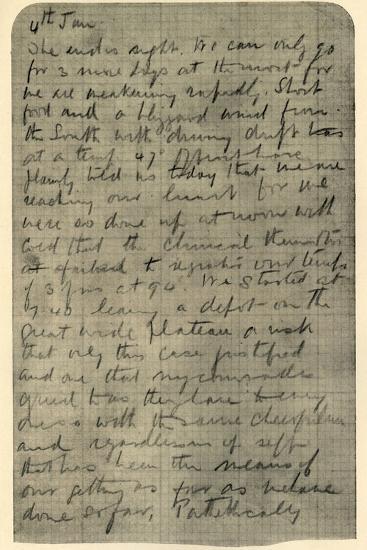 4th Jan.
The end is in sight. We can only go
for 3 more days at the most for
we are weakening rapidly. Short
food and a blizzard wind from
the South with driving drift
at a temp 47° have
plainly told us today that we are
reaching our limit for we
were so done up at noon with
cold that the clinical thermometer
failed to register our temps
of 3 of us at 94°. We started at
7.40 leaving a depot on the
great wide plateau a risk
that only this case justified
and one that my comrades
agreed to as they have to every
one so with the same cheerfulness
and regardlessness of self
that has been the means of
our getting as far as we have
done so far. Pathetically